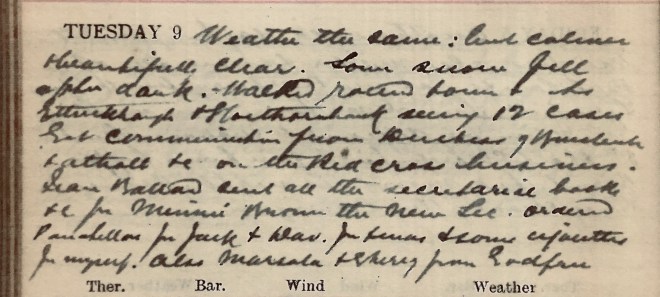 TUESDAY 9 Weather the same: but calmer
& beautifully clear. Some snow fell
after dark. Walked round town & to
Ettrickhaugh & Hawthornbank seeing 12 cases
Got communication from Duchess of
& Atholl &c on the Red Cross business.
sent all the secretarial books
&c for Minnie Brown the new Sec. ordered
for Jack & Dav. for Xmas & some cigarettes
for myself. also Marsala & Sherry from
Ther. Bar. Wind Weather